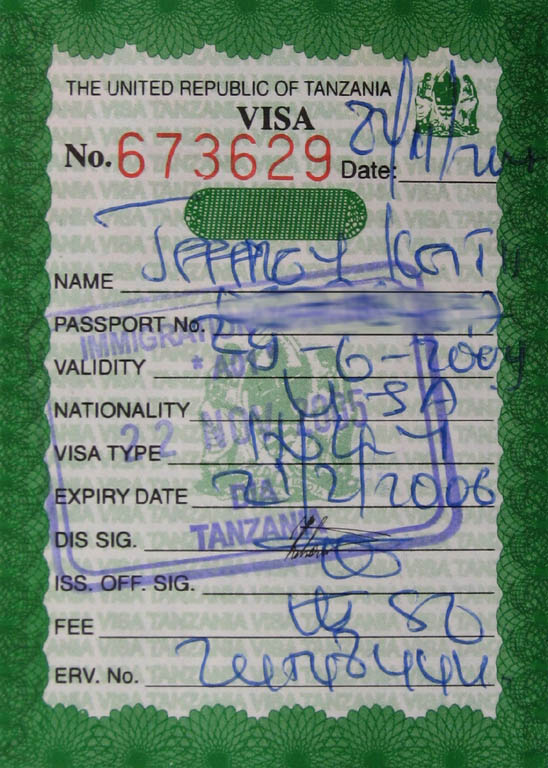 THE UNITED REPUBLIC OF TANZANIA
VISA
No. 673629 Date:
NAME JEFFREY KEITH
PASSPORT No.
VALIDITY 29-6-2009
NATIONALITY USA
VISA TYPE
EXPIRY DATE 21/2/2006
DIS SIG.
ISS. OFF. SIG.
FEE US 50
ERV. No.
IMMIGRATION
22 NOV 2005
DIA
TANZANIA